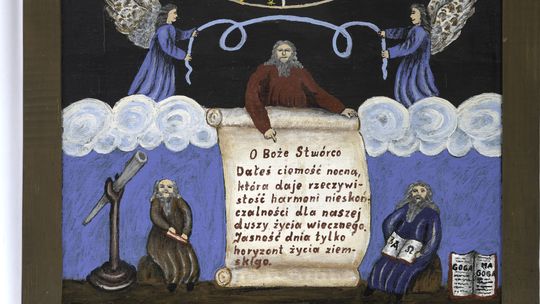 O Boże Stwórco
Dałeś ciemość nocną,
która daje rzeczywi-
stość harmoni nieskoń-
czalności dla naszej
duszy życia wiecznego.
Jasność dnia tylko
horyzont życia ziem-
skigo.
A Ω
GOGA
MA
GOGA